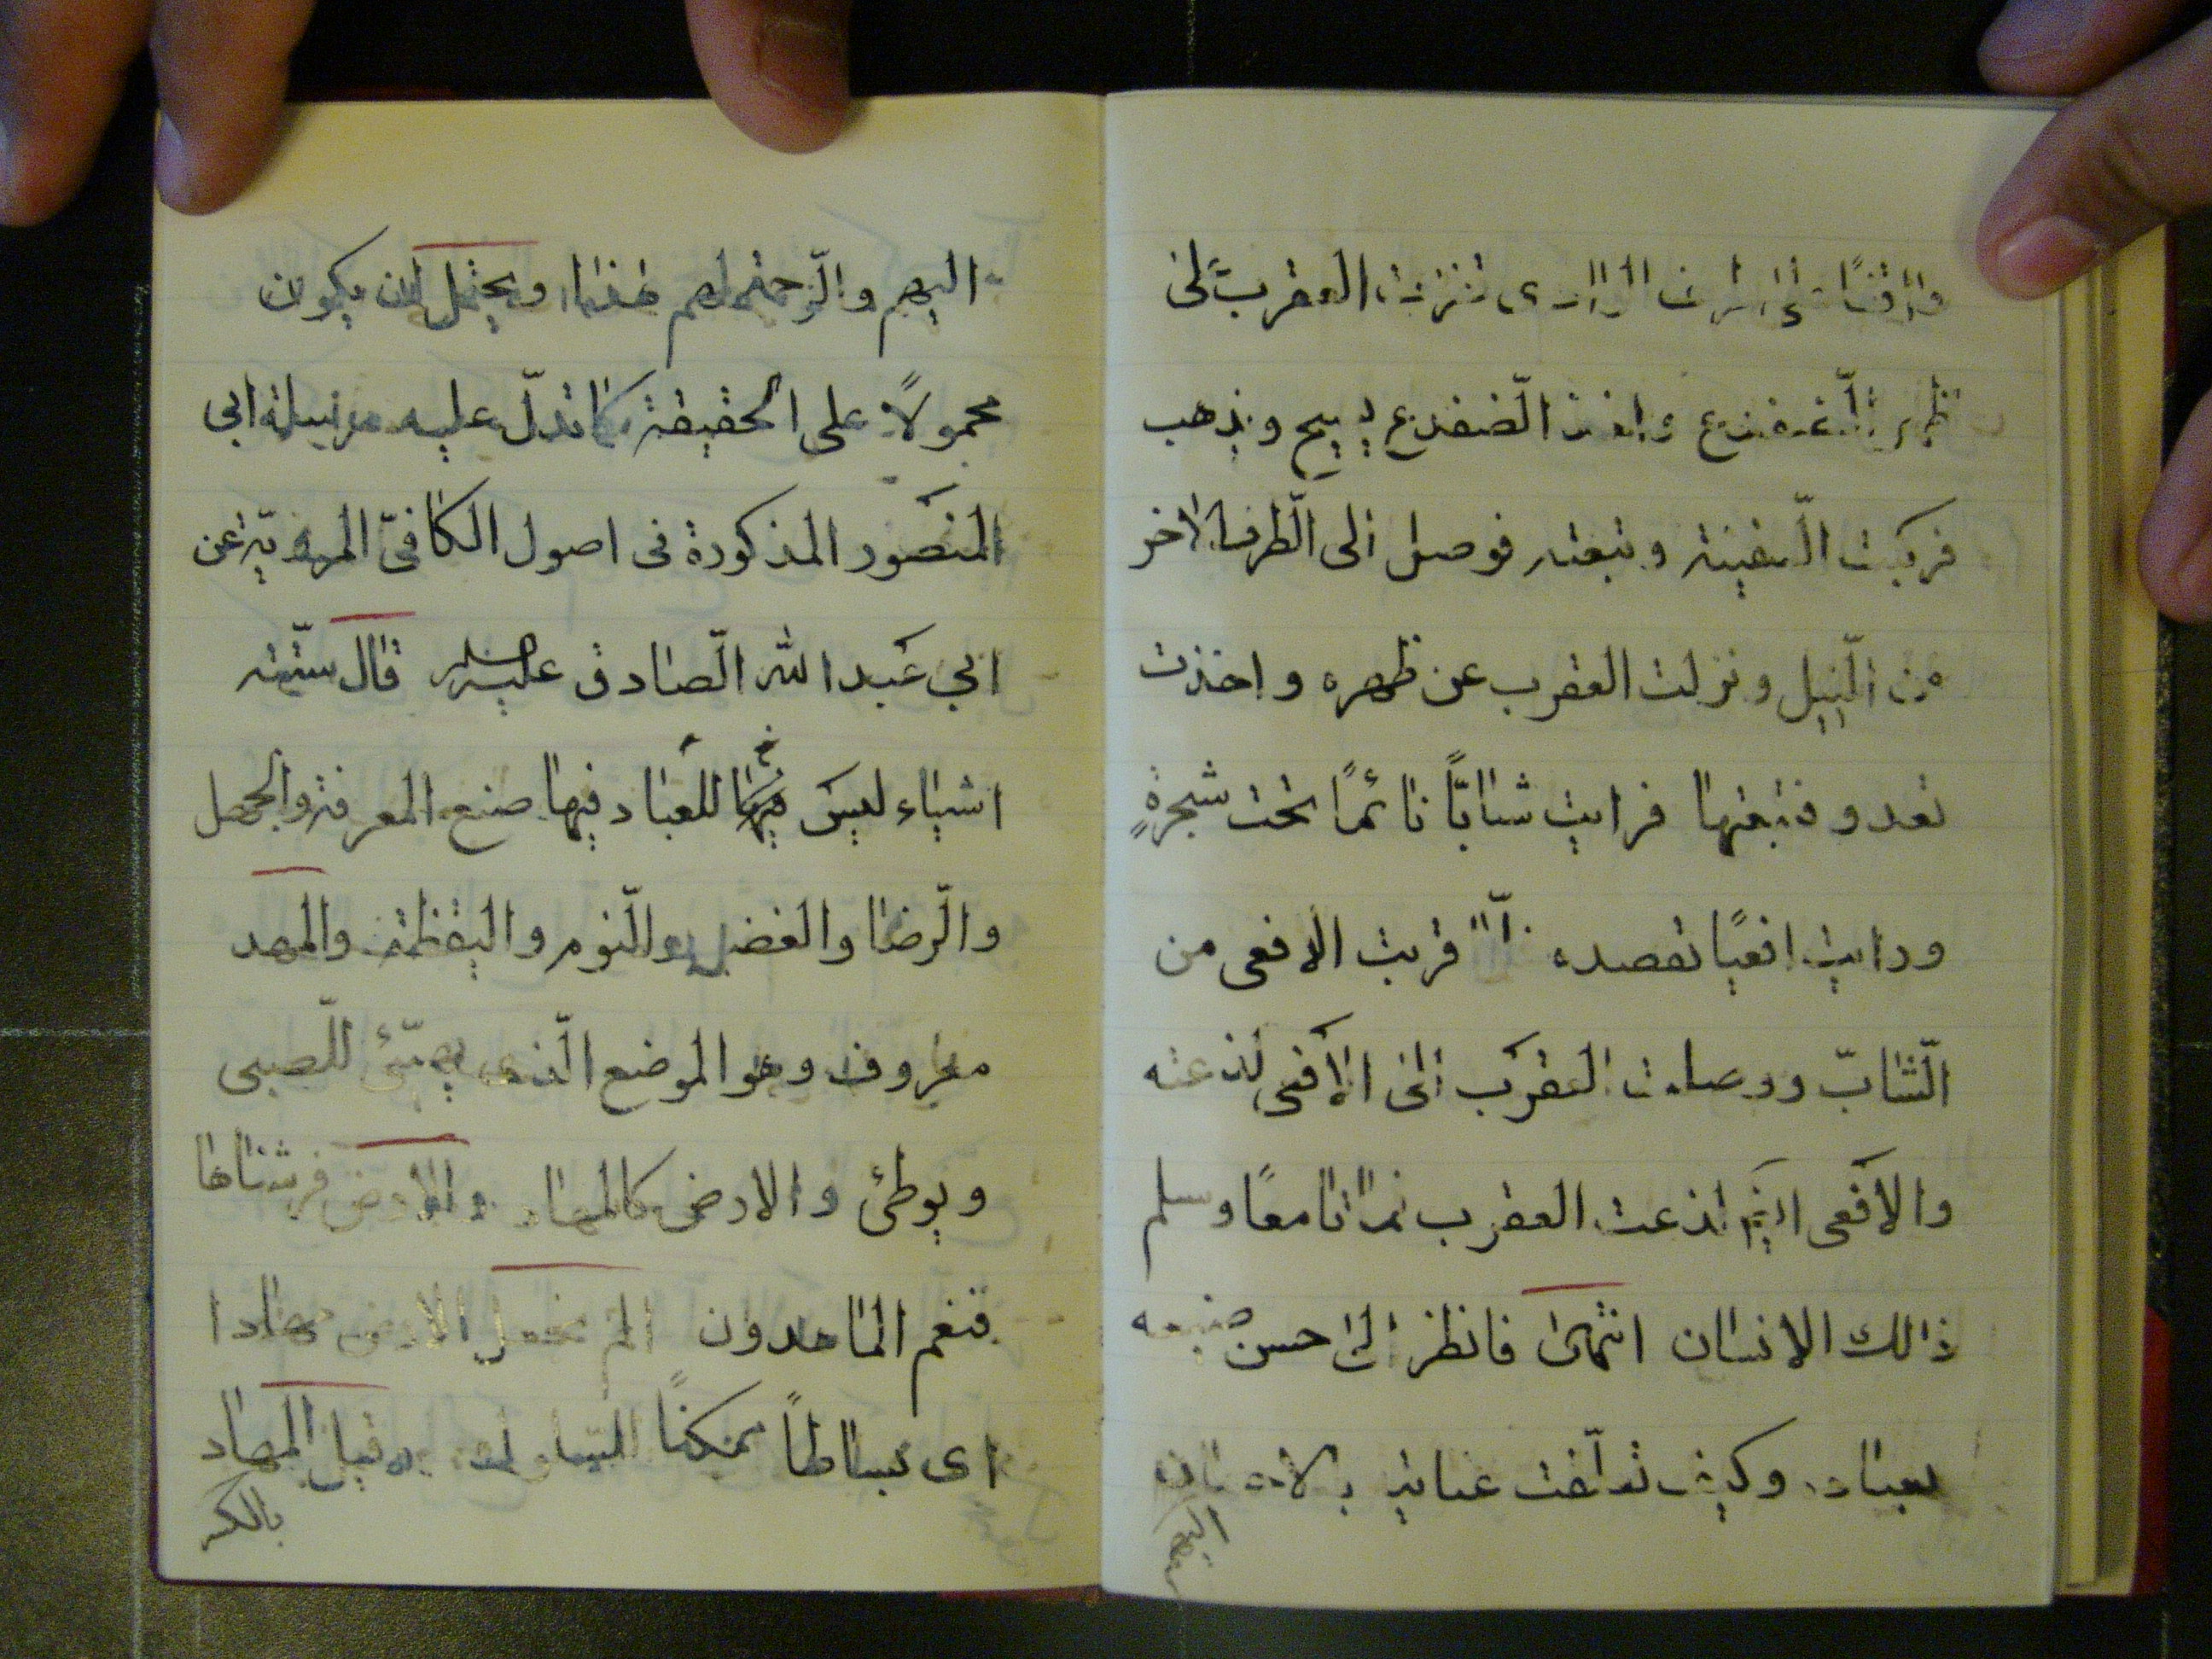 واقفًا على طرف الوادى فنزت العقرب على
ظهر الضفدع واخذ الضّفدع يسيح ويذهب
فركبت السّفينة وتبعته فوصل الى الطّرف الاخر
من النّيل ونزلت العقرب عن ظهره واخذت
تعدو فتبعتها فرايت شابّاً نائمًا تحت شجرةٍ
ورايت افعيًا تقصده فلمّا قربت الافعى من
الشّابّ ووصلت العقرب الى الافعى لذعته
والافعى ايضًا لذعت العقرب فماتا معًا وسلم
ذالك الانسان انتهى فانظر الى حسن صنيعه
بعباده وكيف تعلّقت عنايته بالاحسان
اليهم
اليهم والرّحمة لهم هذا ويحتمل ان يكون
محمولاً على الحقيقة كما تدلّ عليه مرسلة ابى
المنصور المذكورة فى اصول الكافىّ المرويّة عن
ابي عبدالله الصّادق عليه السلام قال ستّة
اشياء ليس فيها للعباد فيها صنع المعرفة والجهل
والرّضا والغضب والنّوم واليقظة والمهد
معروف وهو الموضع الّذى يهيّئ للصّبى
ويوطئ والارض كالمهاد والارض فرشناها
فنعم الماهدون الم نجعل الارض مهادا
اى بساطاً ممكنًا للسلوك وقيل المهاد
بالكسر